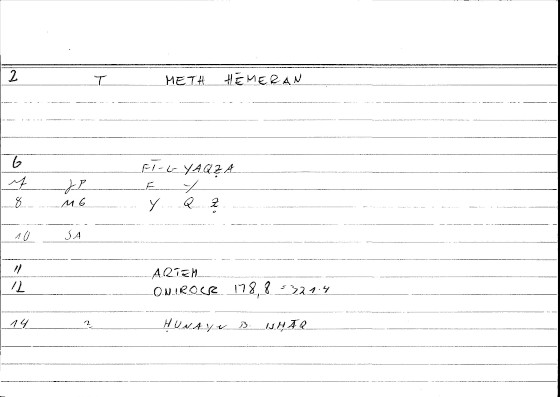 2 T METH HĒMERAN
6 FĪ-L-YAQẒA
7 JP F Y
8 MG Y Q Ẓ
10 SA
11 ARTEM
12 ONIROCR 178,8 = 321.4
14 2 ḤUNAYN B ISḤĀQ